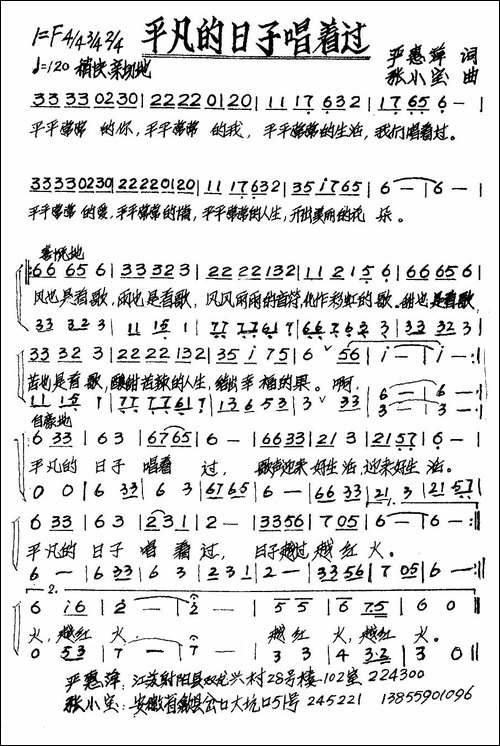 平凡的日子唱着过
1=F 4/4 3/4 2/4
严惠萍 词
♩=120 稍快.亲切地
张小宝 曲
33 33 02 30 | 22 22 01 20 | 11 17 632 | 17 65 6 - |
平平常常 的你，平平常常 的我，平平常常的生活，我们唱着过。
33 33 02 30 | 22 22 01 20 | 11 17 632 | 35 i7 65 | 6 — | 6 — |
平平常常 的爱，平平常常的情，平平常常的人生，开出美丽的花 朵。
喜悦地
66 65 6 | 33 32 3 | 22 22 132 | 11 21 5 6 | 66 65 6 |
风也是着歌，雨也是着歌，风风雨雨的音符化作彩虹的歌。甜也是着歌，
33 32 3 | 11 15 1 | 77 77 617 | 66 76 2 3 | 33 32 3 |
33 32 3 | 22 22 132 | 35 i 75 | 6 ˅ 56 | i — | i — :||
苦也是着 歌，酸甜苦辣的人生，结出幸福的果。啊。
11 15 1 | 77 77 617 | 13 65 3 | 3 ˅ 33 | 6 — | 6 — :||
自豪地
6 33 | 6 3 | 67 65 | 6 — | 66 33 | 21 3 | 21 57 | 6 — |
平凡的 日子 唱着 过，歌声迎来 好生活，迎来好生 活。
0 0 | 6 33 | 6 3 | 67 65 | 6 — | 66 33 | 21 3 | 21 57 |
6 33 | 6 3 | 2 31 | 2 — | 33 56 | 7 05 | 6 — | 6 — :||
平凡的 日子 唱 着 过，日子越过 越 红 火。
6 — | 6 33 | 6 3 | 2 31 | 2 — | 33 56 | 7 05 | 6 — :||
2.
6 i6 | 2 — | 2 — | 5 5 | 6 7.5 | 6 — | 6 0 ||
火，越红 火， 越 红 火，越红 火。
0 53 | 7 — | 7 — | 3 3 | 4 3.2 | 3 — | 3 0 ||
严惠萍：江苏射阳县双龙兴村28号楼-102室 224300
张小宝：安徽省歙县岔口大坑口51号 245221 13855901096